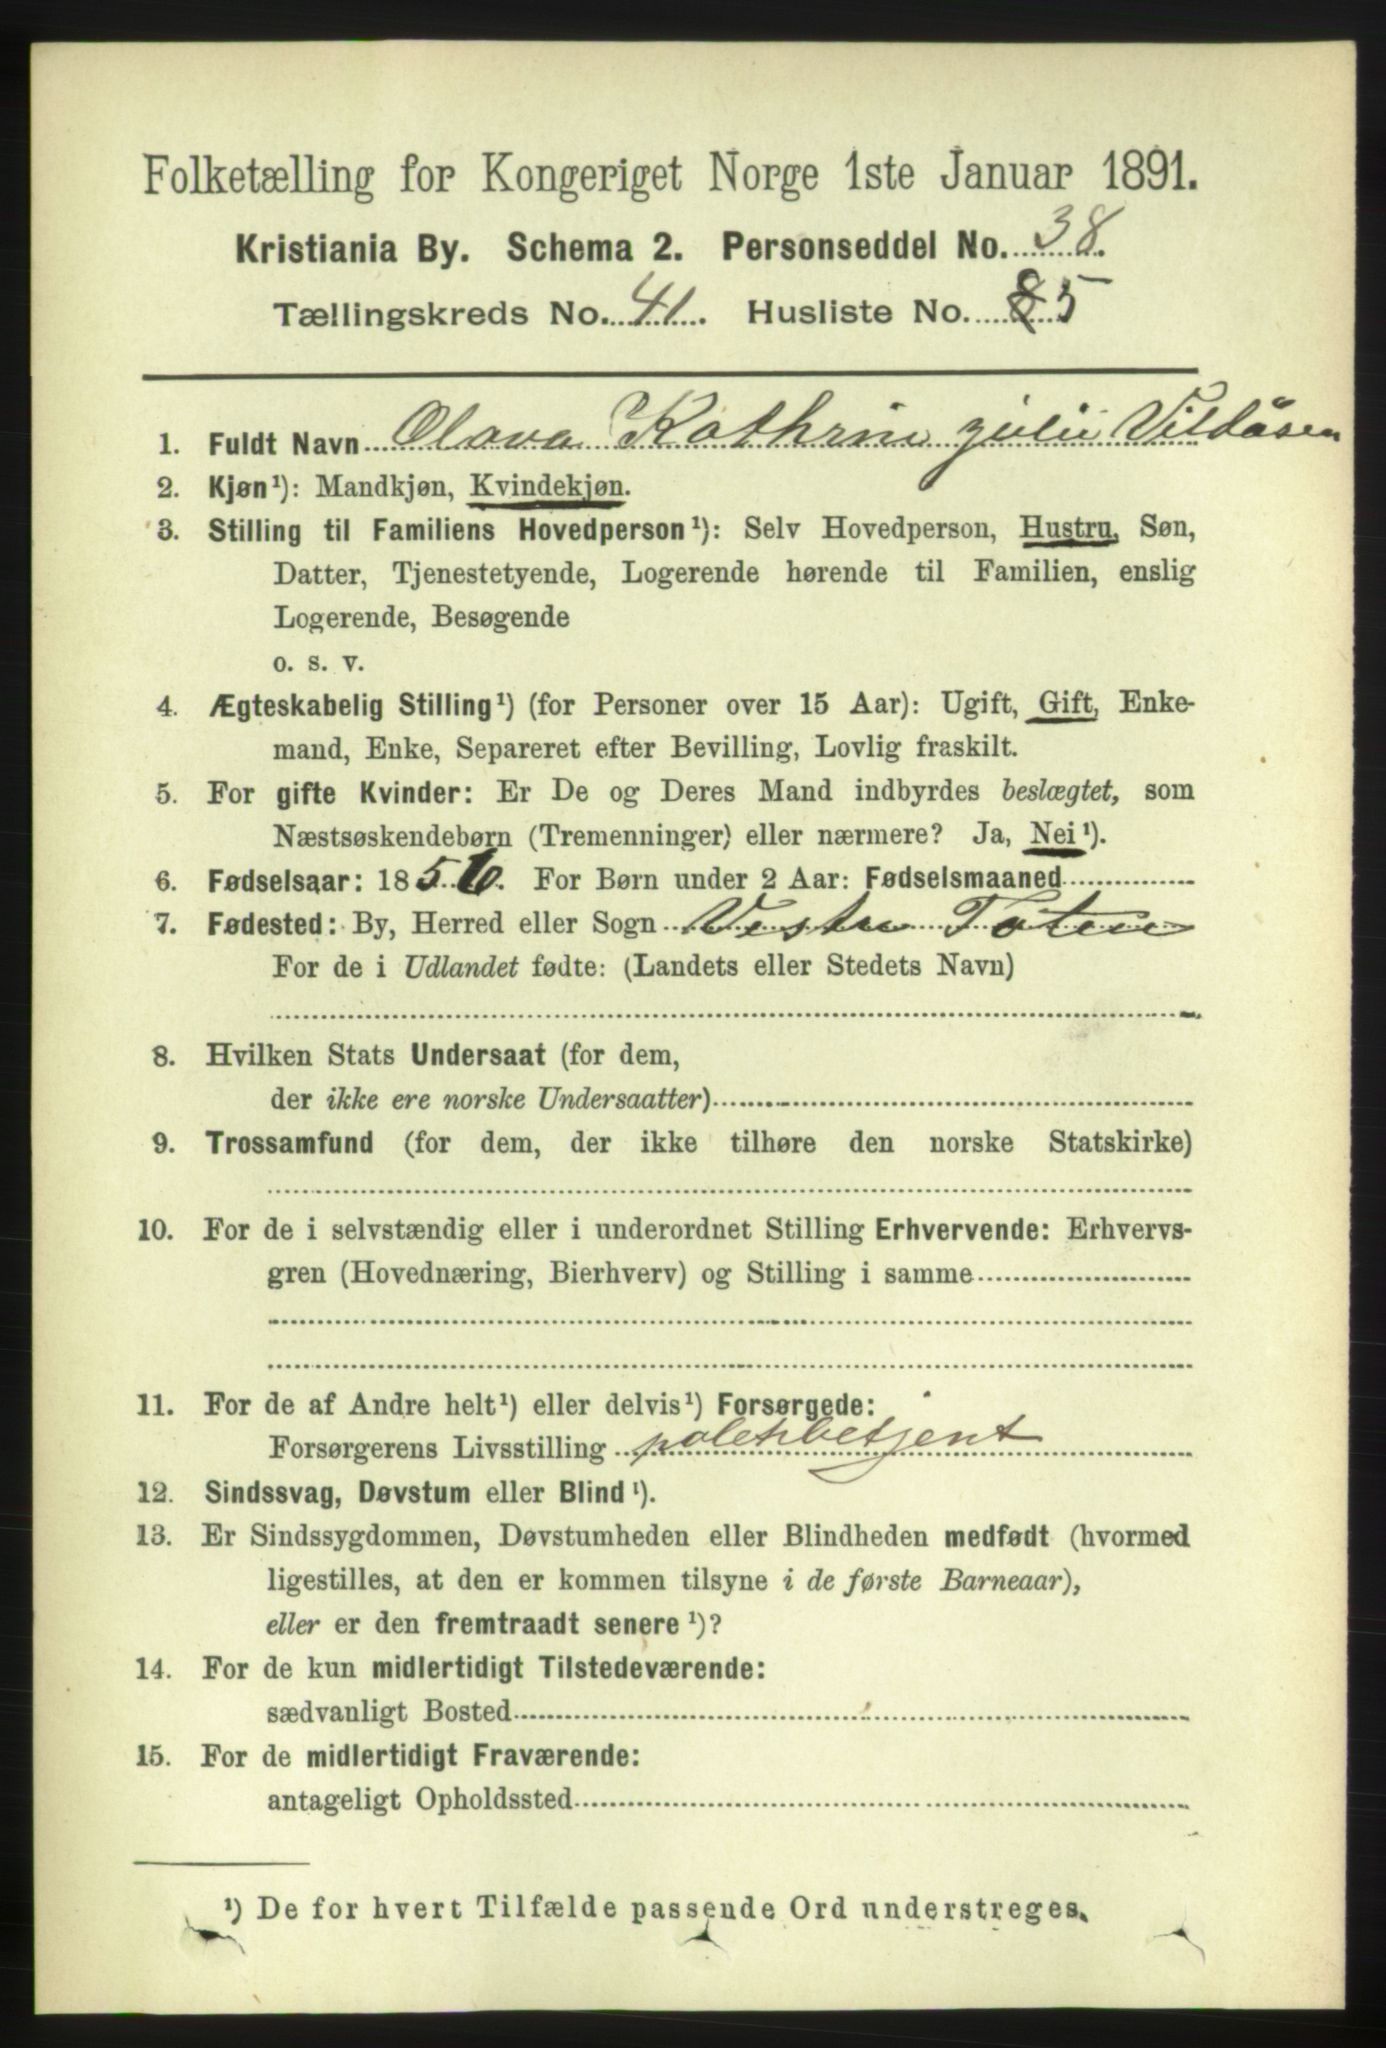 Folketælling for Kongeriget Norge 1ste Januar 1891.
Kristiania By. Schema 2. Personseddel No. 38.
Tællingskreds No. 41. Husliste No. 5
1. Fuldt Navn Olava Kathrine Julie Vildåsen
2. Kjøn¹): Mandkjøn, Kvindekjøn.
3. Stilling til Familiens Hovedperson¹): Selv Hovedperson, Hustru, Søn,
Datter, Tjenestetyende, Logerende hørende til Familien, enslig
Logerende, Besøgende
o. s. v.
4. Ægteskabelig Stilling¹) (for Personer over 15 Aar): Ugift, Gift, Enke-
mand, Enke, Separeret efter Bevilling, Lovlig fraskilt.
5. For gifte Kvinder: Er De og Deres Mand indbyrdes beslægtet, som
Næstsøskendebørn (Tremenninger) eller nærmere? Ja, Nei¹).
6. Fødselsaar: 1856. For Børn under 2 Aar: Fødselsmaaned
7. Fødested: By, Herred eller Sogn Vestre Toten
For de i Udlandet fødte: (Landets eller Stedets Navn)
8. Hvilken Stats Undersaat (for dem,
der ikke ere norske Undersaatter)
9. Trossamfund (for dem, der ikke tilhøre den norske Statskirke)
10. For de i selvstændig eller i underordnet Stilling Erhvervende: Erhvervs-
gren (Hovednæring, Bierhverv) og Stilling i samme
11. For de af Andre helt¹) eller delvis¹) Forsørgede:
Forsørgerens Livsstilling poletibetjent
12. Sindssvag, Døvstum eller Blind¹).
13. Er Sindssygdommen, Døvstumheden eller Blindheden medfødt (hvormed
ligestilles, at den er kommen tilsyne i de første Barneaar),
eller er den fremtraadt senere¹)?
14. For de kun midlertidigt Tilstedeværende:
sædvanligt Bosted
15. For de midlertidigt Fraværende:
antageligt Opholdssted
¹) De for hvert Tilfælde passende Ord understreges.